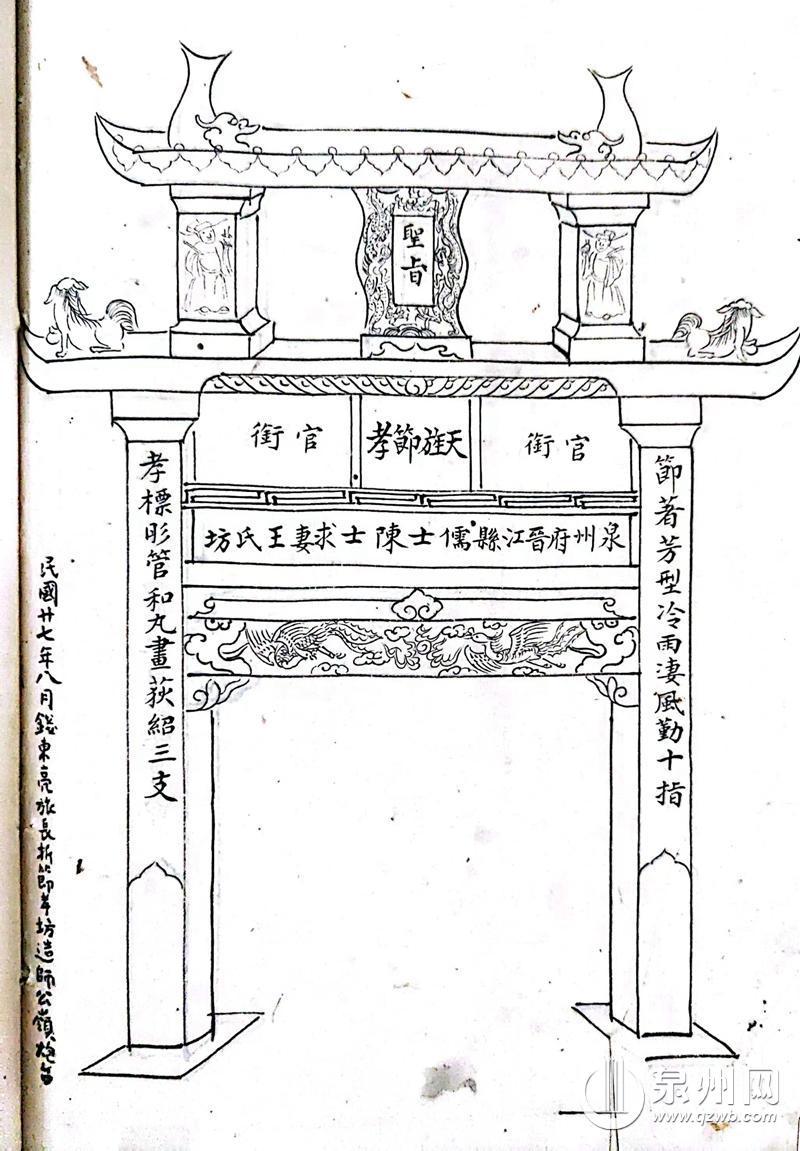 聖旨
官銜
天旌節孝
官銜
泉州府晉江縣儒士陳士求妻王氏坊
節著芳型冷雨淒風勤十指
孝標彤管和丸畫荻紹三支
民國廿七年八月錢東亮旅長拆節孝坊造師公嶺炮台
泉州网
www.qzwb.com